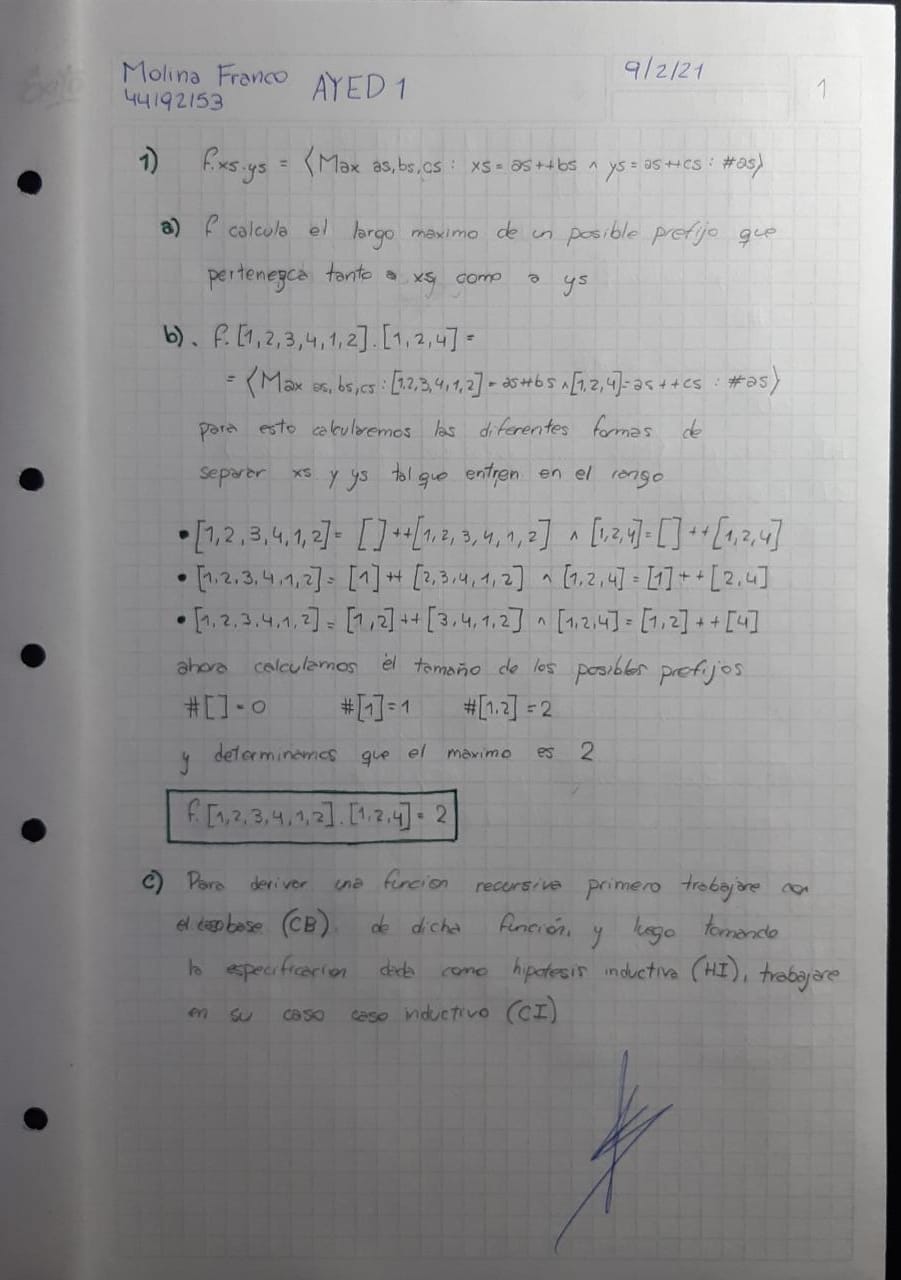 Molina Franco AYED 1 9/2/21 1
44192153
1) f.xs.ys = ⟨Max as,bs,cs : xs = as++bs ∧ ys = as++cs : #as⟩
a) f calcula el largo maximo de un posible prefijo que
pertenezca tanto a xs como a ys
b). f.[1,2,3,4,1,2].[1,2,4] =
= ⟨Max as,bs,cs : [1,2,3,4,1,2] = as++bs ∧ [1,2,4] = as++cs : #as⟩
para esto calcularemos las diferentes formas de
separar xs y ys tal que entren en el rango
• [1,2,3,4,1,2] = []++[1,2,3,4,1,2] ∧ [1,2,4] = []++[1,2,4]
• [1,2,3,4,1,2] = [1]++[2,3,4,1,2] ∧ [1,2,4] = [1]++[2,4]
• [1,2,3,4,1,2] = [1,2]++[3,4,1,2] ∧ [1,2,4] = [1,2]++[4]
ahora calculamos el tamaño de los posibles prefijos
#[] = 0 #[1] = 1 #[1,2] = 2
y determinamos que el maximo es 2
f.[1,2,3,4,1,2].[1,2,4] = 2
c) Para derivar una funcion recursiva primero trabajare con
el caso base (CB) de dicha función, y luego tomando
la especificacion dada como hipotesis inductiva (HI), trabajare
en su caso caso inductivo (CI)